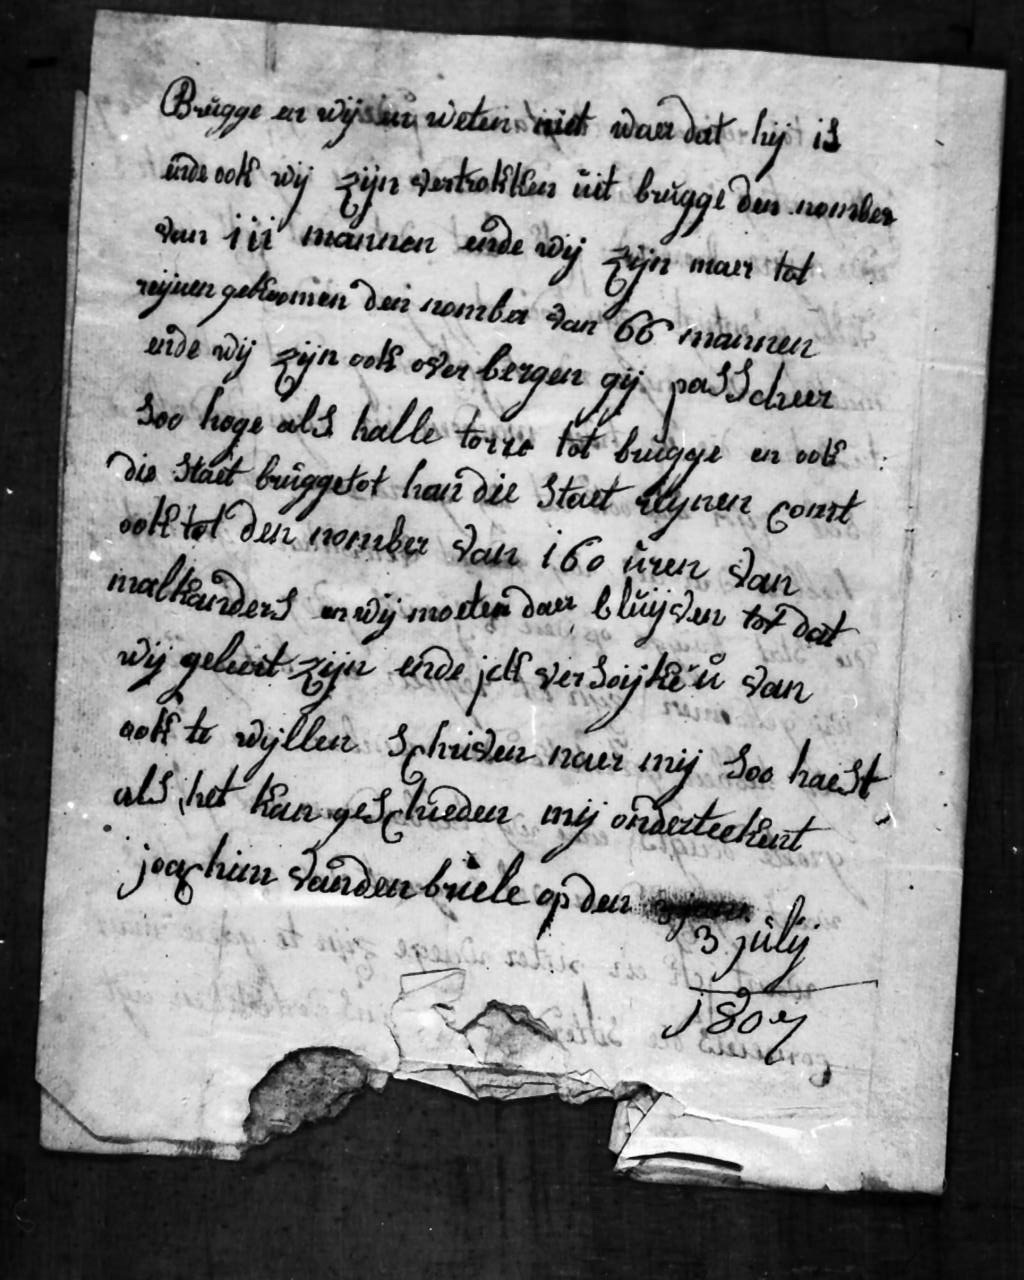 Brugge en wij en weten niet waer dat hij is
ende ook wij zijn vertrokken uit brugge den nomber
van 111 mannen ende wij zijn maer tot
reijnen gekoomen den nomber van 66 mannen
ende wij zijn ook over bergen gij passcheer
soo hoge als halle torre tot brugge en ook
die staet brugge tot han die staet reynen comt
ook tot den nomber van 160 uren van
malkanders en wij moeten daer bluijven tot dat
wij geleert zijn ende jck versoijke u van
ook te wyllen schriven naer mij soo haest
als het kan geschieden mij onderteekent
joachim vanden briele op den
3 julij
1807